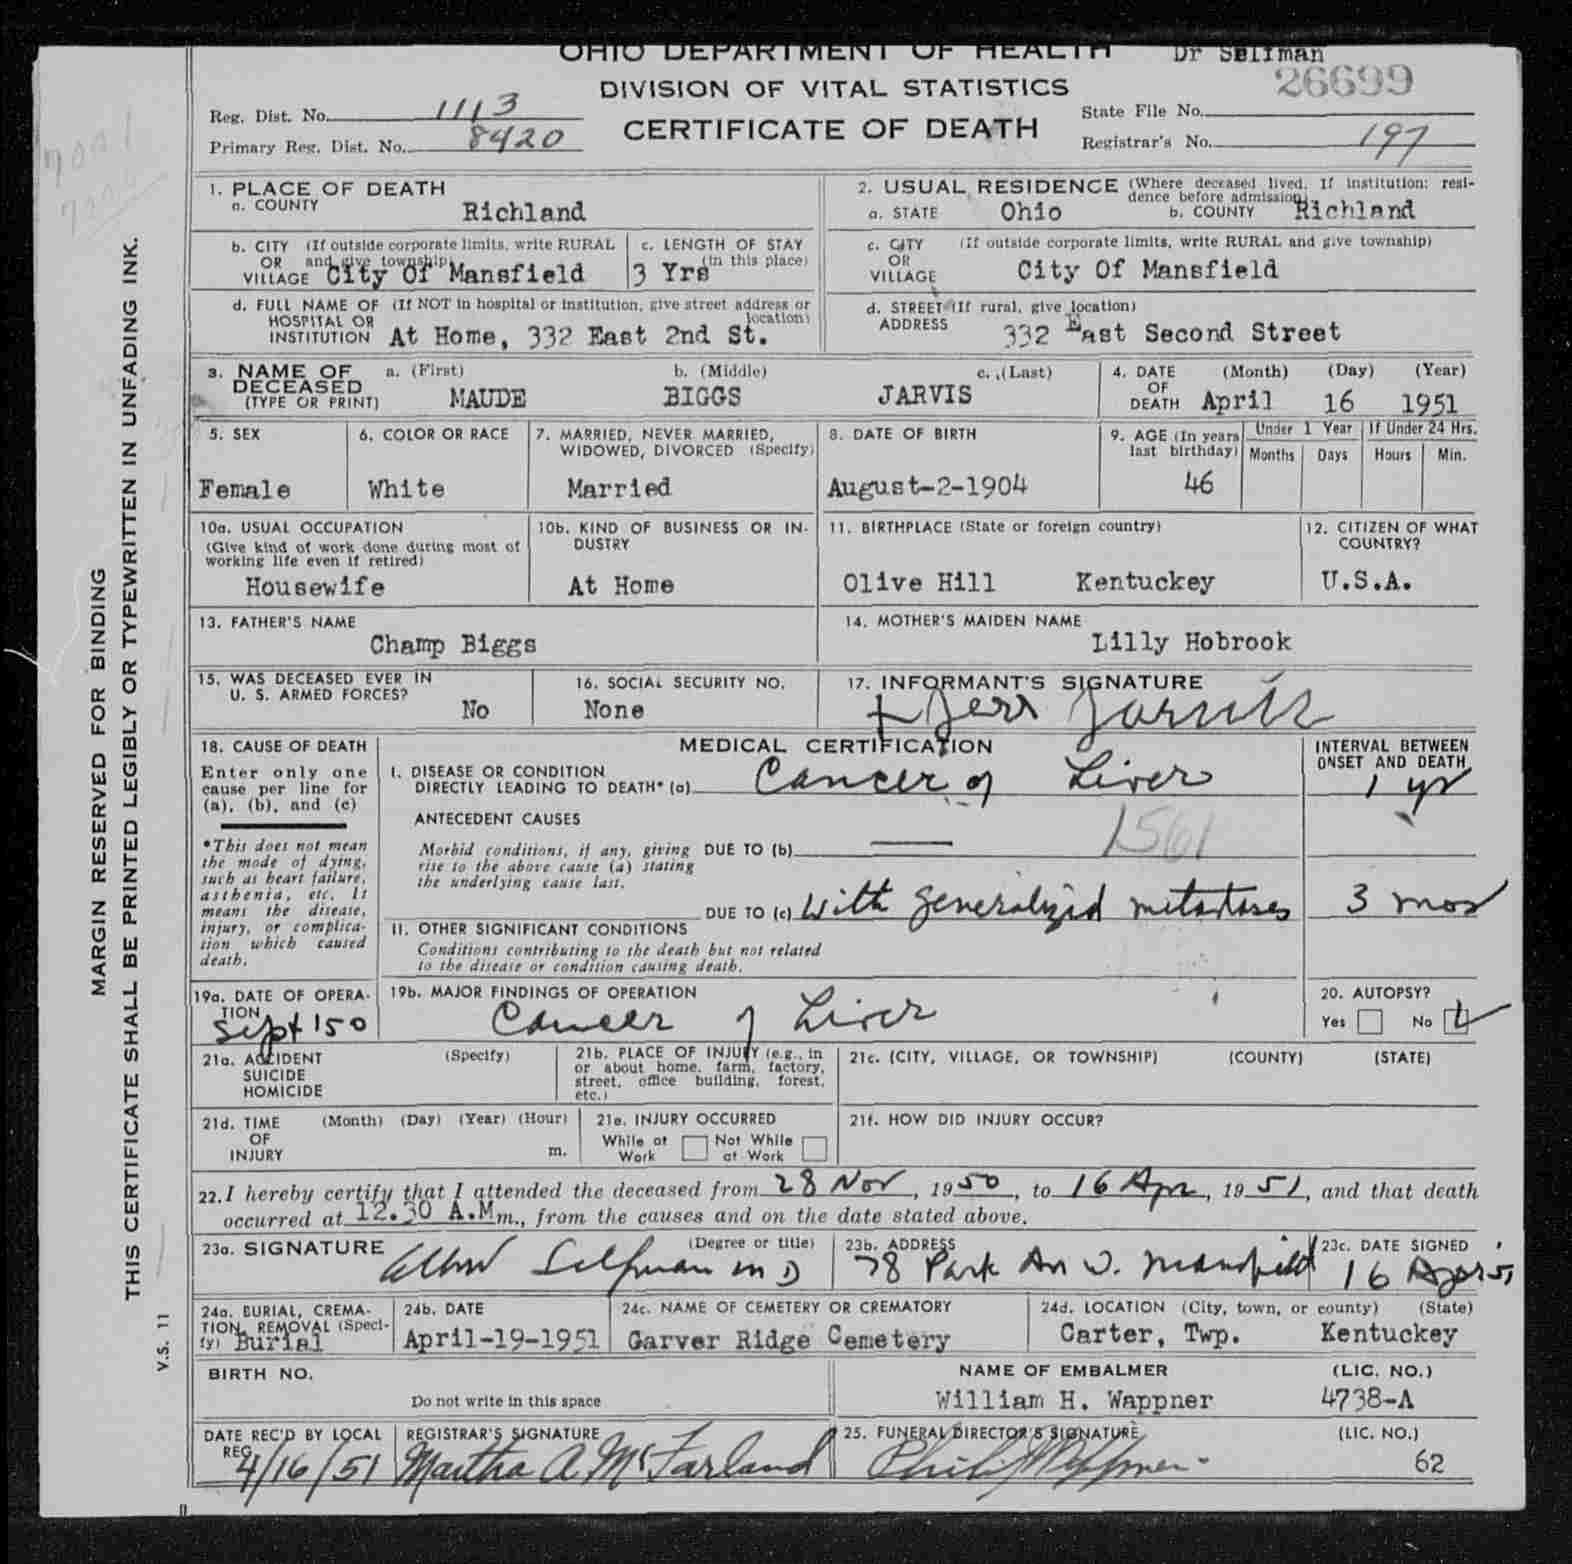 OHIO DEPARTMENT OF HEALTH
Dr Selfman
DIVISION OF VITAL STATISTICS
26699
Reg. Dist. No. 1113
State File No.
CERTIFICATE OF DEATH
Primary Reg. Dist. No. 8420
Registrar's No. 197
1. PLACE OF DEATH
a. COUNTY Richland
2. USUAL RESIDENCE (Where deceased lived. If institution: resi-
dence before admission)
a. STATE Ohio b. COUNTY Richland
b. CITY (If outside corporate limits, write RURAL
OR and give township)
VILLAGE City Of Mansfield
c. LENGTH OF STAY
(in this place)
3 Yrs
c. CITY (If outside corporate limits, write RURAL and give township)
OR
VILLAGE City Of Mansfield
d. FULL NAME OF (If NOT in hospital or institution, give street address or
HOSPITAL OR location)
INSTITUTION At Home, 332 East 2nd St.
d. STREET (If rural, give location)
ADDRESS 332 East Second Street
3. NAME OF a. (First) b. (Middle) c. (Last)
DECEASED
(TYPE OR PRINT) MAUDE BIGGS JARVIS
4. DATE (Month) (Day) (Year)
OF
DEATH April 16 1951
5. SEX
Female
6. COLOR OR RACE
White
7. MARRIED, NEVER MARRIED,
WIDOWED, DIVORCED (Specify)
Married
8. DATE OF BIRTH
August-2-1904
9. AGE (In years
last birthday)
46
Under 1 Year
Months Days
If Under 24 Hrs.
Hours Min.
10a. USUAL OCCUPATION
(Give kind of work done during most of
working life even if retired)
Housewife
10b. KIND OF BUSINESS OR IN-
DUSTRY
At Home
11. BIRTHPLACE (State or foreign country)
Olive Hill Kentuckey
12. CITIZEN OF WHAT
COUNTRY?
U.S.A.
13. FATHER'S NAME
Champ Biggs
14. MOTHER'S MAIDEN NAME
Lilly Hobrook
15. WAS DECEASED EVER IN
U. S. ARMED FORCES?
No
16. SOCIAL SECURITY NO.
None
17. INFORMANT'S SIGNATURE
18. CAUSE OF DEATH
Enter only one
cause per line for
(a), (b), and (c)
*This does not mean
the mode of dying,
such as heart failure,
asthenia, etc. It
means the disease,
injury, or complica-
tion which caused
death.
MEDICAL CERTIFICATION
INTERVAL BETWEEN
ONSET AND DEATH
I. DISEASE OR CONDITION
DIRECTLY LEADING TO DEATH* (a) Cancer of Liver
1 yr
ANTECEDENT CAUSES
1561
Morbid conditions, if any, giving DUE TO (b)
rise to the above cause (a) stating
the underlying cause last.
DUE TO (c) with generalized metastases
3 mos
II. OTHER SIGNIFICANT CONDITIONS
Conditions contributing to the death but not related
to the disease or condition causing death.
19a. DATE OF OPERA-
TION
Sept '50
19b. MAJOR FINDINGS OF OPERATION
Cancer of Liver
20. AUTOPSY?
Yes No
21a. ACCIDENT (Specify)
SUICIDE
HOMICIDE
21b. PLACE OF INJURY (e.g., in
or about home, farm, factory,
street, office building, forest,
etc.)
21c. (CITY, VILLAGE, OR TOWNSHIP) (COUNTY) (STATE)
21d. TIME (Month) (Day) (Year) (Hour)
OF
INJURY m.
21e. INJURY OCCURRED
While at Work Not While at Work
21f. HOW DID INJURY OCCUR?
22. I hereby certify that I attended the deceased from 28 Nov, 1950, to 16 Apr, 1951, and that death
occurred at 12.30 A.M m., from the causes and on the date stated above.
23a. SIGNATURE (Degree or title)
Selfman M D
23b. ADDRESS
78 Park Av W. Mansfield
23c. DATE SIGNED
16 Apr 51
24a. BURIAL, CREMA-
TION, REMOVAL (Speci-
fy) Burial
24b. DATE
April-19-1951
24c. NAME OF CEMETERY OR CREMATORY
Garver Ridge Cemetery
24d. LOCATION (City, town, or county) (State)
Carter, Twp. Kentuckey
BIRTH NO.
Do not write in this space
NAME OF EMBALMER (LIC. NO.)
William H. Wappner 4738-A
DATE REC'D BY LOCAL
REG.
4/16/51
REGISTRAR'S SIGNATURE
Martha A McFarland
25. FUNERAL DIRECTOR'S SIGNATURE (LIC. NO.)
62
MARGIN RESERVED FOR BINDING
THIS CERTIFICATE SHALL BE PRINTED LEGIBLY OR TYPEWRITTEN IN UNFADING INK.
V.S. 11